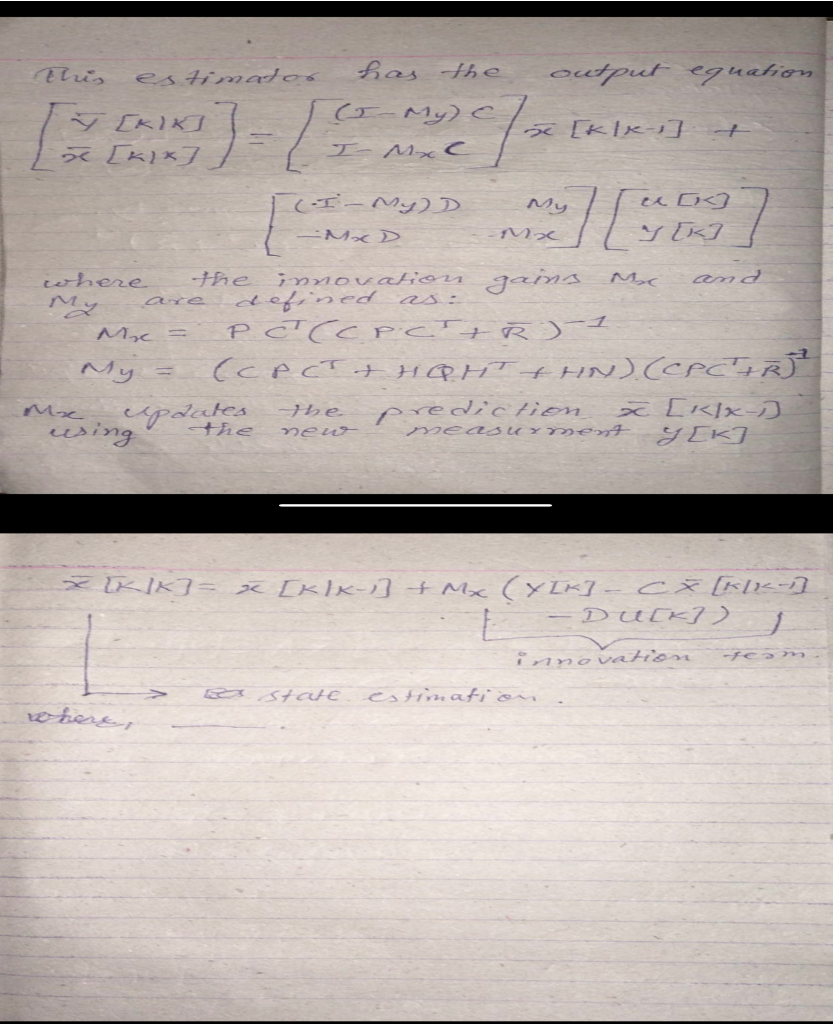 This estimator has the output equation
[ȳ [K|K] x̄ [K|K]] = [(I-My)C I-MxC] x̄ [K|K-1] +
[(I-My)D My -MxD Mx] [u[K] y[K]]
where the innovation gains Mx and
My are defined as:
Mx = P Cᵀ(C P Cᵀ + R̄)⁻¹
My = (C P Cᵀ + HQHᵀ + HN)(CPCᵀ+R̄)⁻¹
Mx updates the prediction x̄ [K|K-1]
using the new measurment y[K]
x̄ [K|K] = x̄ [K|K-1] + Mx (Y[K] - C x̄ [K|K-1]
- D U[K])
innovation term
state estimation.
where,